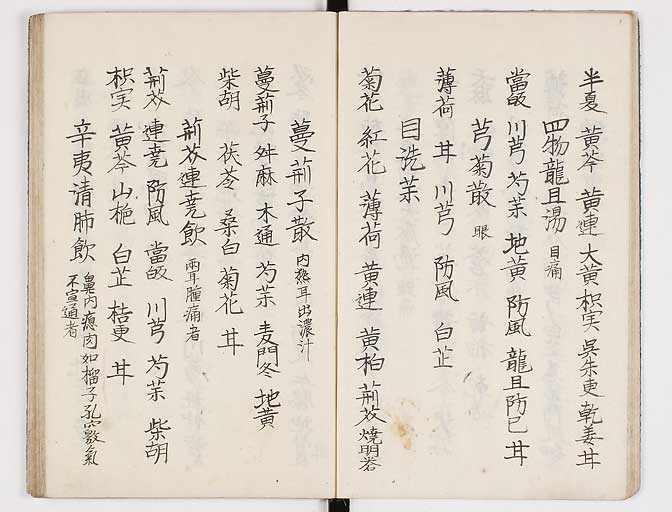 半夏 黄芩 黄連 大黄 枳実 呉朱更 乾姜 甘
四物龍且湯 目痛
當皈 川芎 芍茱 地黄 防風 龍且 防已 甘
芎菊散 眼
薄荷 甘 川芎 防風 白芷
目洗茱
菊花 紅花 薄荷 黄連 黄柏 荊芥 焼明礬
蔓荊子散 内熱耳出濃汁
蔓荊子 舛麻 木通 芍茱 麦門冬 地黄
柴胡 茯苓 桑白 菊花 甘
荊芥連堯飲 両耳腫痛者
荊芥 連堯 防風 當皈 川芎 芍茱 柴胡
枳実 黄芩 山梔 白芷 桔更 甘
辛夷清肺飲 鼻内瘜肉如榴子孔穴礙氣
不宣通者